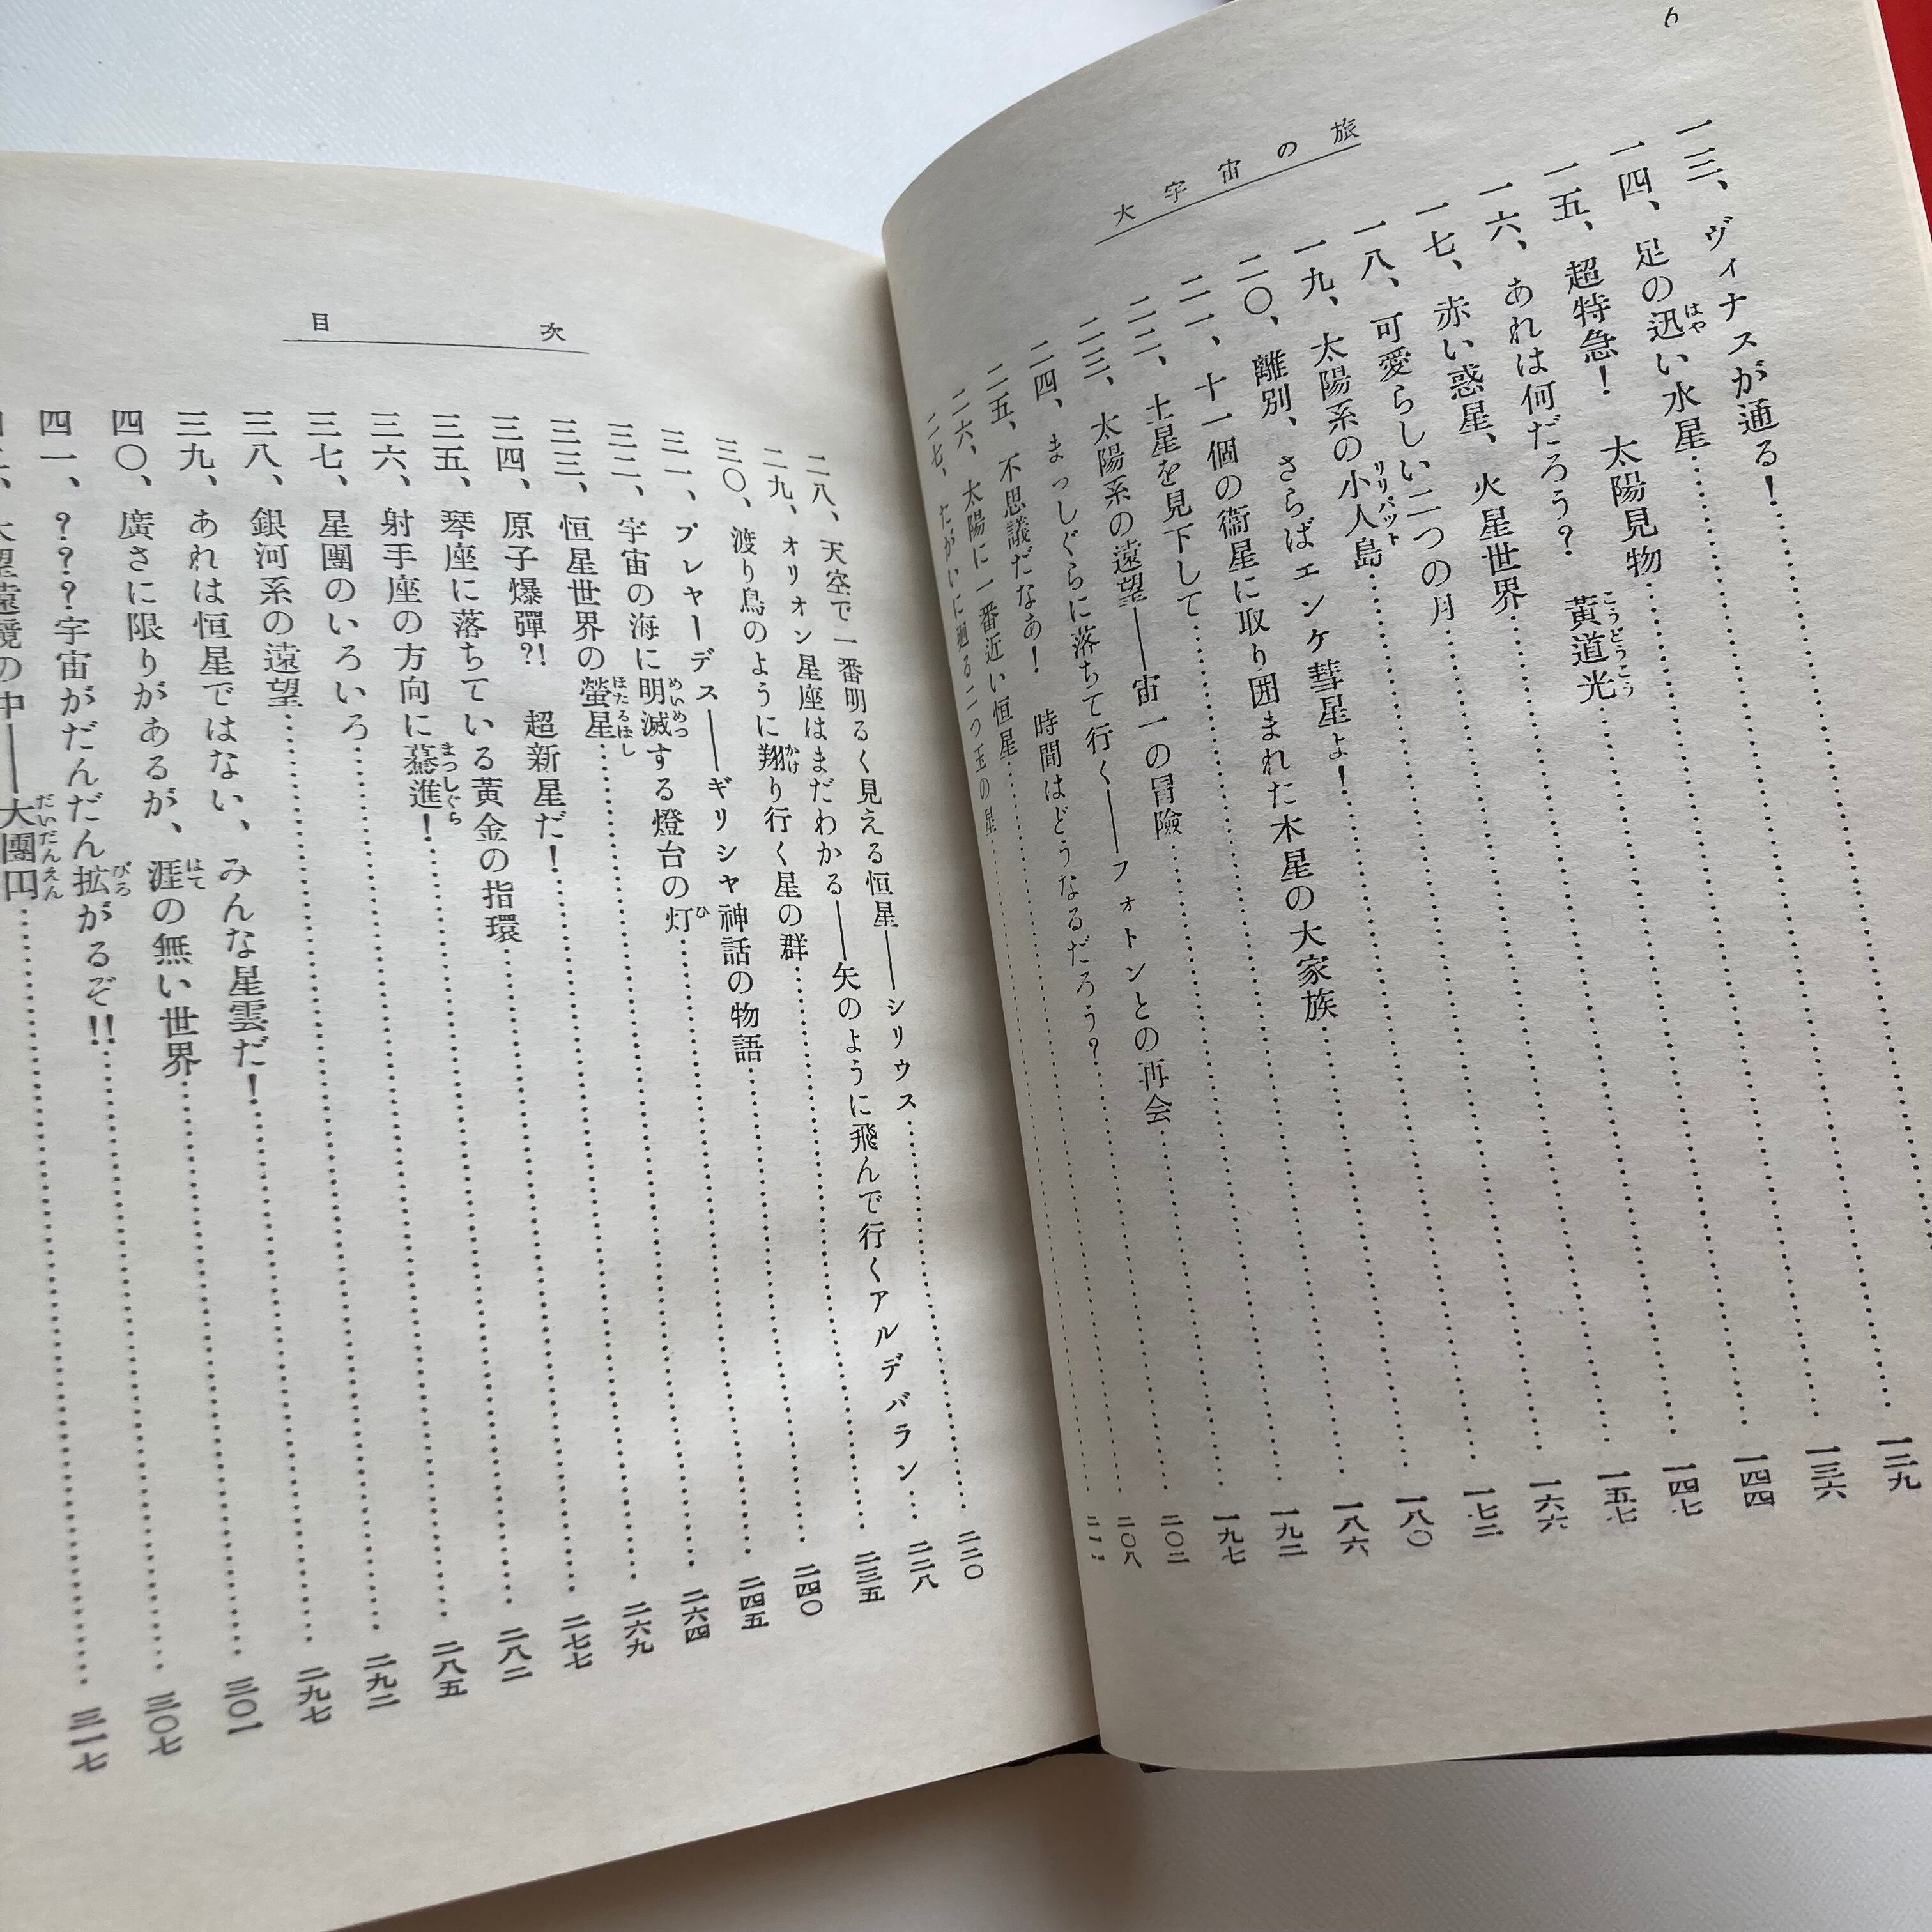 6
大宇宙の旅
一三、ヴィナスが通る！……
一四、足の迅い水星……一二九
はや
一五、超特急！　太陽見物……一三六
一六、あれは何だろう？　黄道光……一四四
こうどうこう
一七、赤い惑星、火星世界……一四七
一八、可愛らしい二つの月……一五七
一九、太陽系の小人島……一六六
リリパット
二〇、離別、さらばエンケ彗星よ！……一七二
二一、十一個の衞星に取り囲まれた木星の大家族……一八〇
二二、土星を見下して……一八六
二三、太陽系の遠望――宙一の冒險……一九二
二四、まっしぐらに落ちて行く――フォトンとの再会……一九七
二五、不思議だなあ！　時間はどうなるだろう？……二〇二
二六、太陽に一番近い恒星……二〇八
二七、たがいに廻る二つ玉の星……
目次
二八、天空で一番明るく見える恒星――シリウス……二二〇
二九、オリオン星座はまだわかる――矢のように飛んで行くアルデバラン……二二八
三〇、渡り鳥のように翔り行く星の群……二三五
かけ
三一、プレヤーデス――ギリシャ神話の物語……二四〇
三二、宇宙の海に明滅する燈台の灯……二四五
めいめつ　ひ
三三、恒星世界の螢星……二六四
ほたるほし
三四、原子爆彈?!　超新星だ！……二六九
三五、琴座に落ちている黄金の指環……二七七
三六、射手座の方向に驀進！……二八二
まつしぐら
三七、星團のいろいろ……二八五
三八、銀河系の遠望……二九二
三九、あれは恒星ではない、みんな星雲だ！……二九七
四〇、廣さに限りがあるが、涯の無い世界……三〇一
はて
四一、？？？宇宙がだんだん拡がるぞ!!……三〇七
ひろ
大望遠鏡の中――大團円……三一七
だいだんえん